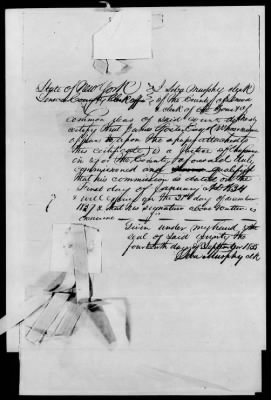 State of New York I Seba Murphy clerk
Seneca County Clerks office of the County of Seneca
& clerk of the Court of
common pleas of said county do hereby
certify that James
appears to upon the paper attached to
this certificate is a Justice of the
in & for the County of aforesaid duly
commissioned and qualified
that his commission is dated on the
first day of January 1834
& will expire on the 31st day of December
1837 & that his signature above written is
genuine
Given under my hand & the
seal of said county the
fourteenth day of September 1835
Seba Murphy clk